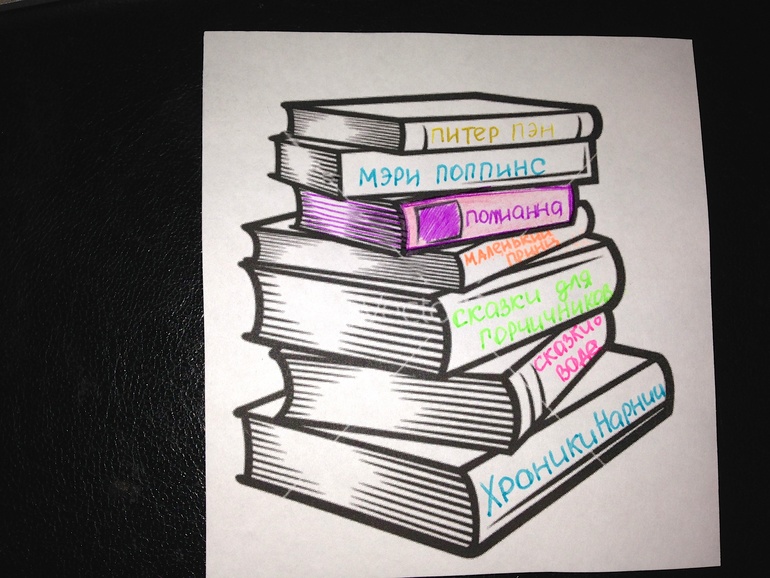 питер пэн
мэри поппинс
полианна
маленький
принц
сказки для
горчичников
сказки о
воде
Хроники Нарнии